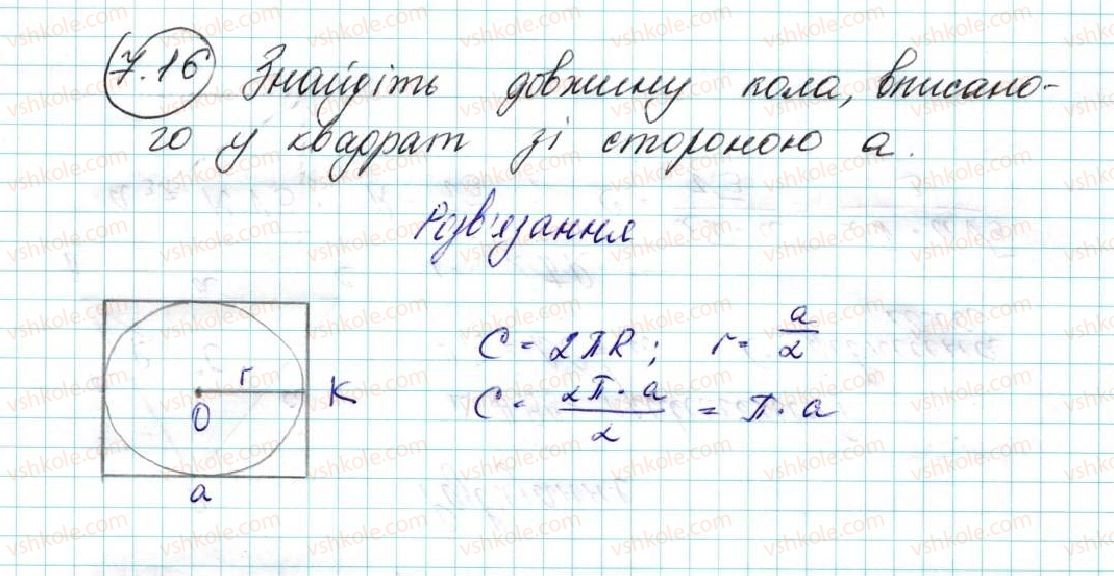 7.16 Знайдіть довжину кола, вписано-
го у квадрат зі стороною a.
Розв'язання
C = 2πR; r = a/2
C = 2π·a/2 = π·a
r
O
K
a